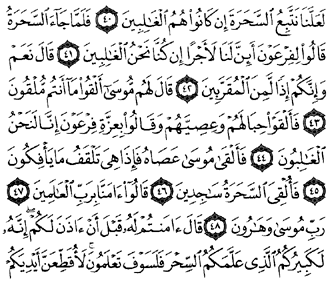 لَعَلَّنَا نَتَّبِعُ السَّحَرَةَ إِن كَانُوا۟ هُمُ الْغَٰلِبِينَ ﴿٤٠﴾ فَلَمَّا جَآءَ السَّحَرَةُ
قَالُوا۟ لِفِرْعَوْنَ أَئِنَّ لَنَا لَأَجْرًا إِن كُنَّا نَحْنُ الْغَٰلِبِينَ ﴿٤١﴾ قَالَ نَعَمْ
وَإِنَّكُمْ إِذًا لَّمِنَ الْمُقَرَّبِينَ ﴿٤٢﴾ قَالَ لَهُم مُّوسَىٰٓ أَلْقُوا۟ مَآ أَنتُم مُّلْقُونَ
﴿٤٣﴾ فَأَلْقَوْا۟ حِبَالَهُمْ وَعِصِيَّهُمْ وَقَالُوا۟ بِعِزَّةِ فِرْعَوْنَ إِنَّا لَنَحْنُ
الْغَٰلِبُونَ ﴿٤٤﴾ فَأَلْقَىٰ مُوسَىٰ عَصَاهُ فَإِذَا هِىَ تَلْقَفُ مَا يَأْفِكُونَ
﴿٤٥﴾ فَأُلْقِىَ السَّحَرَةُ سَٰجِدِينَ ﴿٤٦﴾ قَالُوٓا۟ ءَامَنَّا بِرَبِّ الْعَٰلَمِينَ ﴿٤٧﴾
رَبِّ مُوسَىٰ وَهَٰرُونَ ﴿٤٨﴾ قَالَ ءَامَنتُمْ لَهُۥ قَبْلَ أَنْ ءَاذَنَ لَكُمْ إِنَّهُۥ
لَكَبِيرُكُمُ الَّذِى عَلَّمَكُمُ السِّحْرَ فَلَسَوْفَ تَعْلَمُونَ لَأُقَطِّعَنَّ أَيْدِيَكُمْ